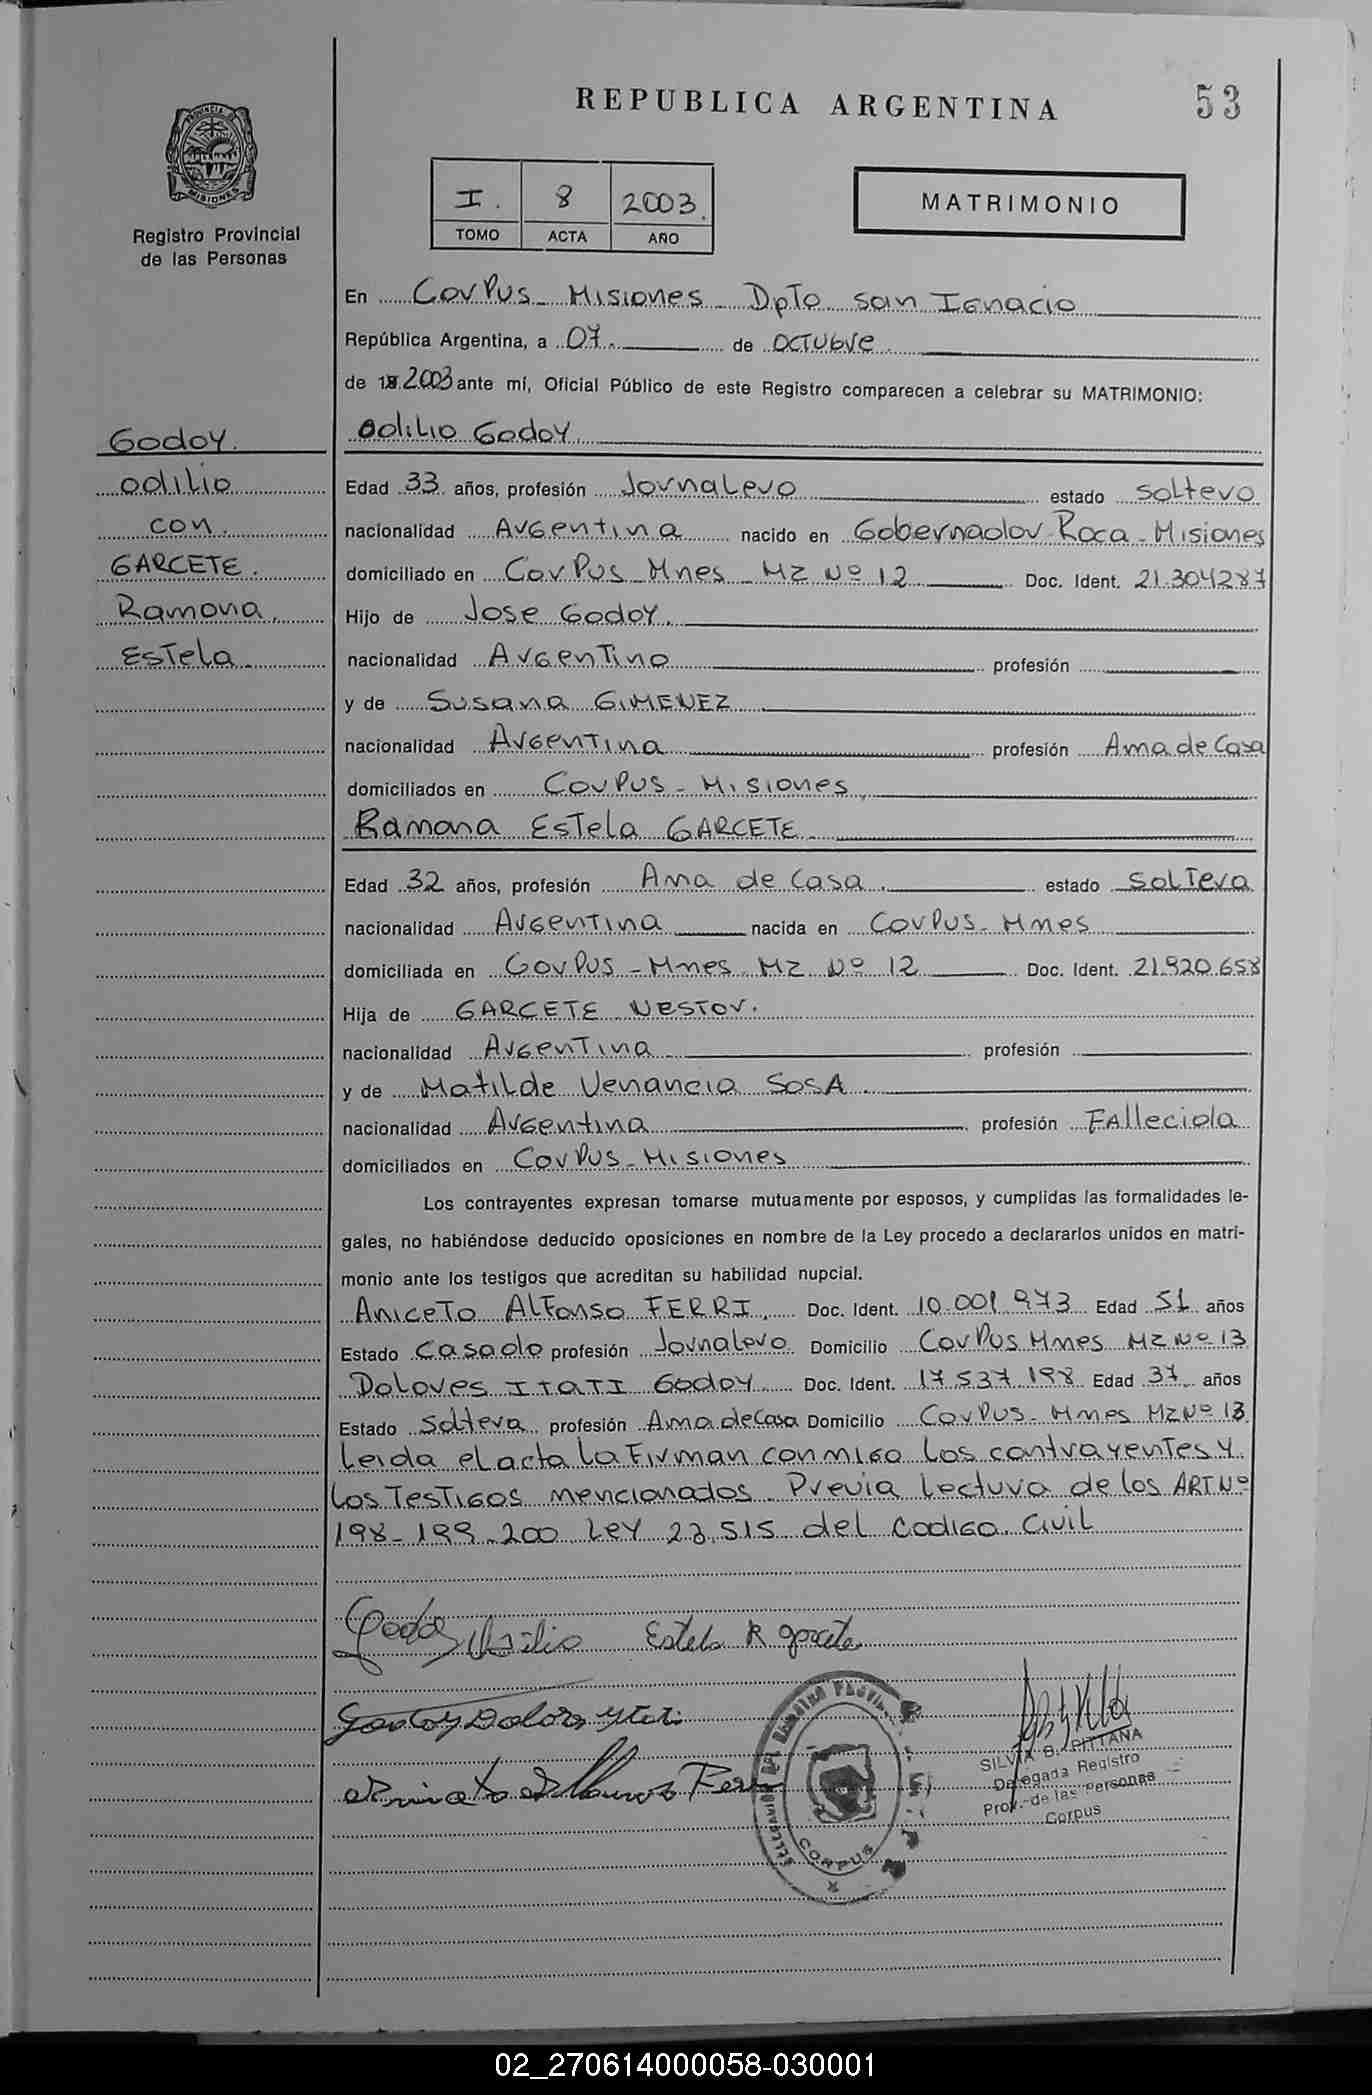 REPUBLICA ARGENTINA
53
PROVINCIA DE
MISIONES
Registro Provincial
de las Personas
I. 8 2003.
TOMO ACTA AÑO
MATRIMONIO
En Corpus - Misiones - Dpto San Ignacio
República Argentina, a 07. de octubre
de 2003 ante mí, Oficial Público de este Registro comparecen a celebrar su MATRIMONIO:
Godoy.
odilio
con.
GARCETE.
Ramona.
Estela
odilio Godoy.
Edad 33 años, profesión Jornalero estado soltero
nacionalidad Argentina nacido en Gobernador Roca - Misiones
domiciliado en Corpus Mnes - Mz Nº 12 Doc. Ident. 21.304287
Hijo de Jose Godoy.
nacionalidad Argentino profesión
y de Susana GIMENEZ
nacionalidad Argentina profesión Ama de Casa
domiciliados en Corpus - Misiones
Ramona Estela GARCETE
Edad 32 años, profesión Ama de Casa estado soltera
nacionalidad Argentina nacida en Corpus - Mnes
domiciliada en Corpus - Mnes Mz Nº 12 Doc. Ident. 21.920.658
Hija de GARCETE Nestor.
nacionalidad Argentina profesión
y de Matilde Venancia SOSA
nacionalidad Argentina profesión Fallecida
domiciliados en Corpus - Misiones
Los contrayentes expresan tomarse mutuamente por esposos, y cumplidas las formalidades le-
gales, no habiéndose deducido oposiciones en nombre de la Ley procedo a declararlos unidos en matri-
monio ante los testigos que acreditan su habilidad nupcial.
Aniceto Alfonso FERRI Doc. Ident. 10.001.973 Edad 51 años
Estado Casado profesión Jornalero Domicilio Corpus Mnes Mz Nº 13
Dolores ITATI Godoy Doc. Ident. 17.537.198 Edad 37 años
Estado Soltera profesión Ama de Casa Domicilio Corpus - Mnes Mz Nº 13
Leida el acta la Firman conmigo los contrayentes y
los Testigos mencionados. Previa lectura de los ART Nº
198-199-200 Ley 23.515 del codigo Civil
Godoy Odilio Estela R garcete
Godoy Dolores ytati
Aniceto Alfonso Ferri
CORPUS
SILVIA B. PITTANA
Delegada Registro
Prov. de las Personas
Corpus
02_270614000058-030001